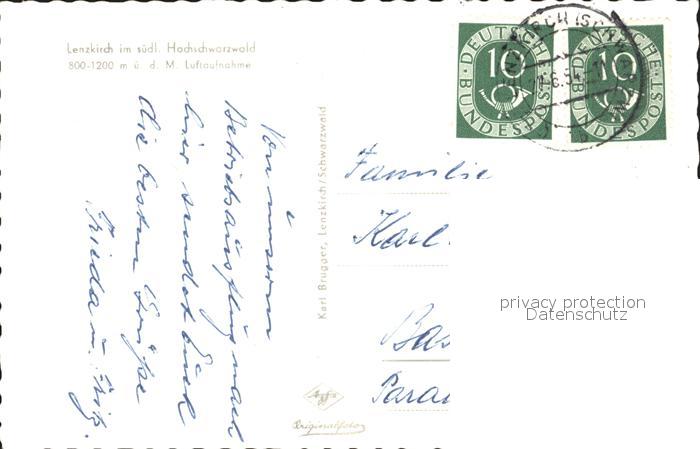 Lenzkirch im südl. Hochschwarzwald
800-1200 m ü. d. M. Luftaufnahme
Von unserem
Betriebsausflug nach
hier sendet Euch
die besten Grüße
Frieda u. Fritz.
Karl Brugger, Lenzkirch/Schwarzwald
Agfa
Originalfoto
DEUTSCHE
10
BUNDESPOST
DEUTSCHE
10
BUNDESPOST
Familie
Karl
Bas
Para
privacy protection
Datenschutz